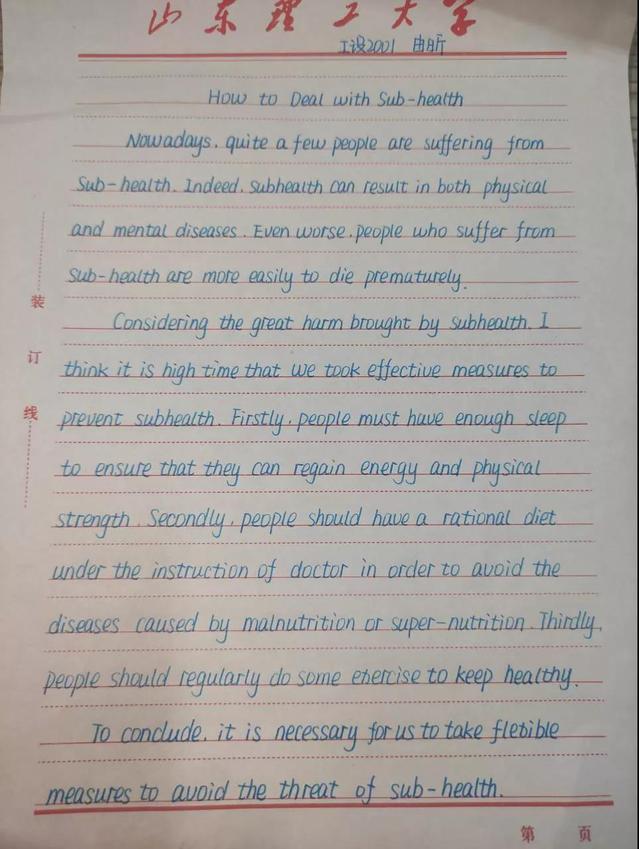 山东理工大学
工设2001 由昕
How to Deal with Sub-health
Nowadays, quite a few people are suffering from
Sub-health. Indeed, subhealth can result in both physical
and mental diseases. Even worse, people who suffer from
sub-health are more easily to die prematurely.
Considering the great harm brought by subhealth, I
think it is high time that we took effective measures to
prevent subhealth. Firstly, people must have enough sleep
to ensure that they can regain energy and physical
strength. Secondly, people should have a rational diet
under the instruction of doctor in order to avoid the
diseases caused by malnutrition or super-nutrition. Thirdly,
people should regularly do some exercise to keep healthy.
To conclude, it is necessary for us to take flexible
measures to avoid the threat of sub-health.
装
订
线
第 页